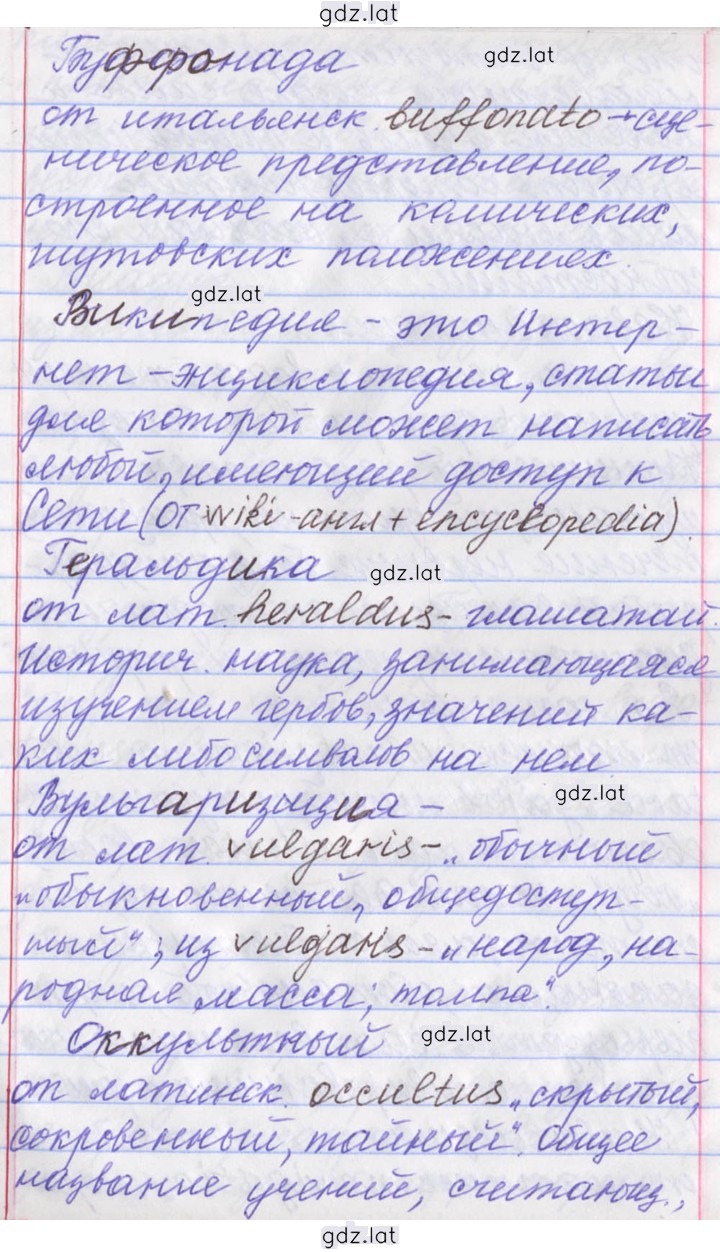 gdz.lat
Буффонада
gdz.lat
от итальянск. buffonato → сце-
ническое представление, по-
строенное на комических,
шутовских положениях.
gdz.lat
Википедия - это Интер-
нет - энциклопедия, статьи
для которой может написать
любой, имеющий доступ к
Сети (от wiki - англ + encyclopedia).
Геральдика
gdz.lat
от лат. heraldus - глашатай.
Историч. наука, занимающаяся
изучением гербов, значений ка-
ких либо символов на нем.
gdz.lat
Вульгаризация -
от лат. vulgaris - „обычный
„обыкновенный, общедоступ-
ный“; из vulgaris - „народ, на-
родная масса; толпа“.
Оккультный
gdz.lat
от латинск. occultus „скрытый,
сокровенный, тайный“. Общее
название учений, считающ.,
gdz.lat